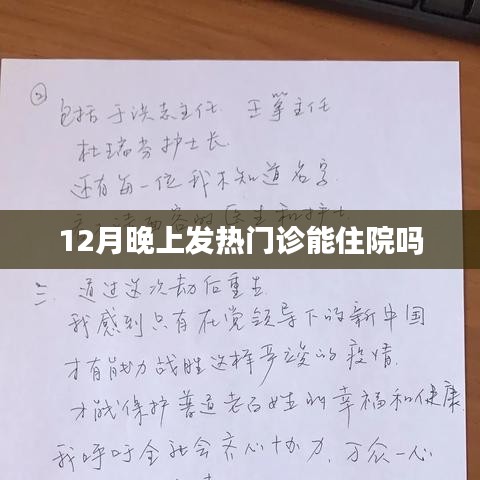 ②
包括于洪志主任 王箏主任
杜瑞芬护士长
还有每一位我不知道名字
的医生和护士
12月晚上发热门诊能住院吗
三 通过这次劫后重生
我感到只有在党领导下的新中国
才有能力战胜这样严峻的疫情
才能保护普通老百姓的幸福和健康
我呼吁全社会齐心协力,万众一心